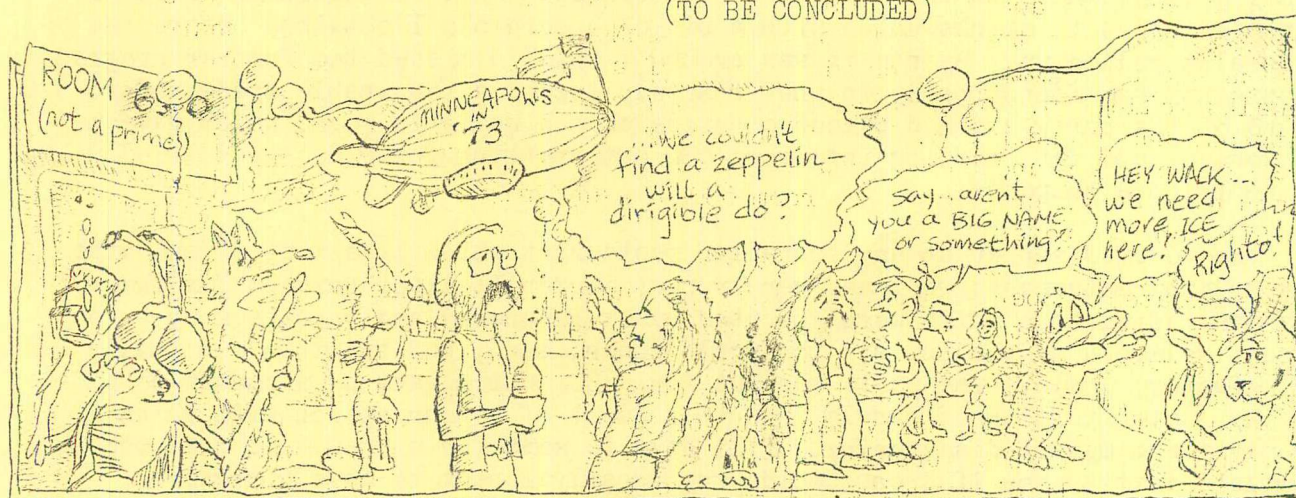 (TO BE CONCLUDED)
ROOM
(not a prime!)
MINNEAPOLIS
IN
'73
...we couldn't
find a zeppelin—
will a
dirigible do?
Say..arent
you a BIG NAME
or something?
HEY WACK...
we need
more ICE
here!
Righto!